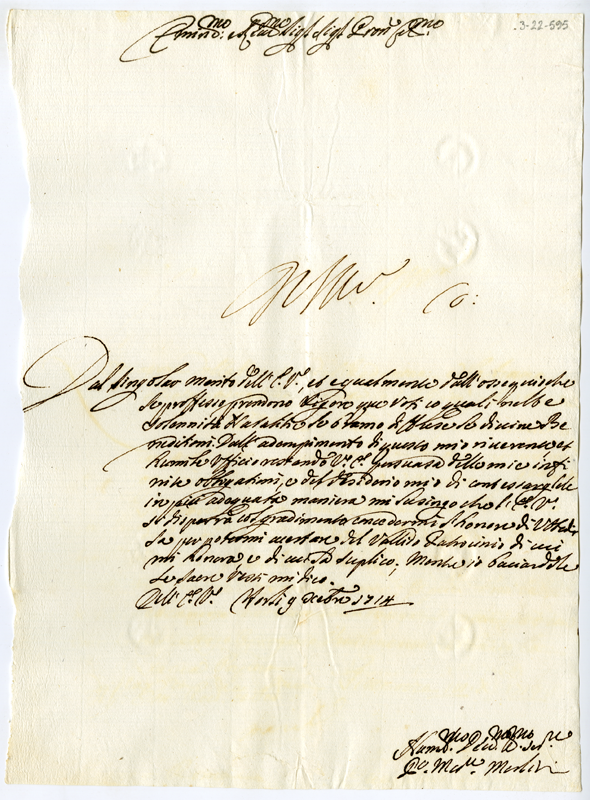 3-22-595
Emin.mo e Rev.mo Sig.r Sig.r Pron.e Col.mo
Co:
Dal singolar merito dell' E. V., et egualmente dall' ossequio che
le professo prendono vigore que voti co quali nelle
solennità Natalitie le bramo diffuse le divine Be
nedittioni. Dall' adempimento di questo mio riverente, et
humile Officio restando V.ra E. persuasa delle mie infi
nite obligationi, e del desiderio mio di contestargliele
in più adeguata maniera mi lusingo che l' E. V.
si disporrà col gradimento concedermi l'honore di
sa per potermi accertare del Valido Patrocinio di cui
mi honora, e di cui la suplico; Mentre io baciandole
le Sacre Vesti mi dico.
Dell' E. V. Forlì 9 Xcembre 1714
Hum.mo Dev.mo Ser.re
Merlini